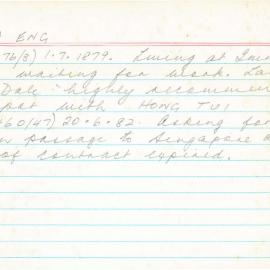 ENG
76/3) 1.7.1879. Living at
waiting for work. La
Dale" highly recommen
pot with HONG TUI
60/47) 20.6.82. Asking for
n passage to Singapore
of contract expired.